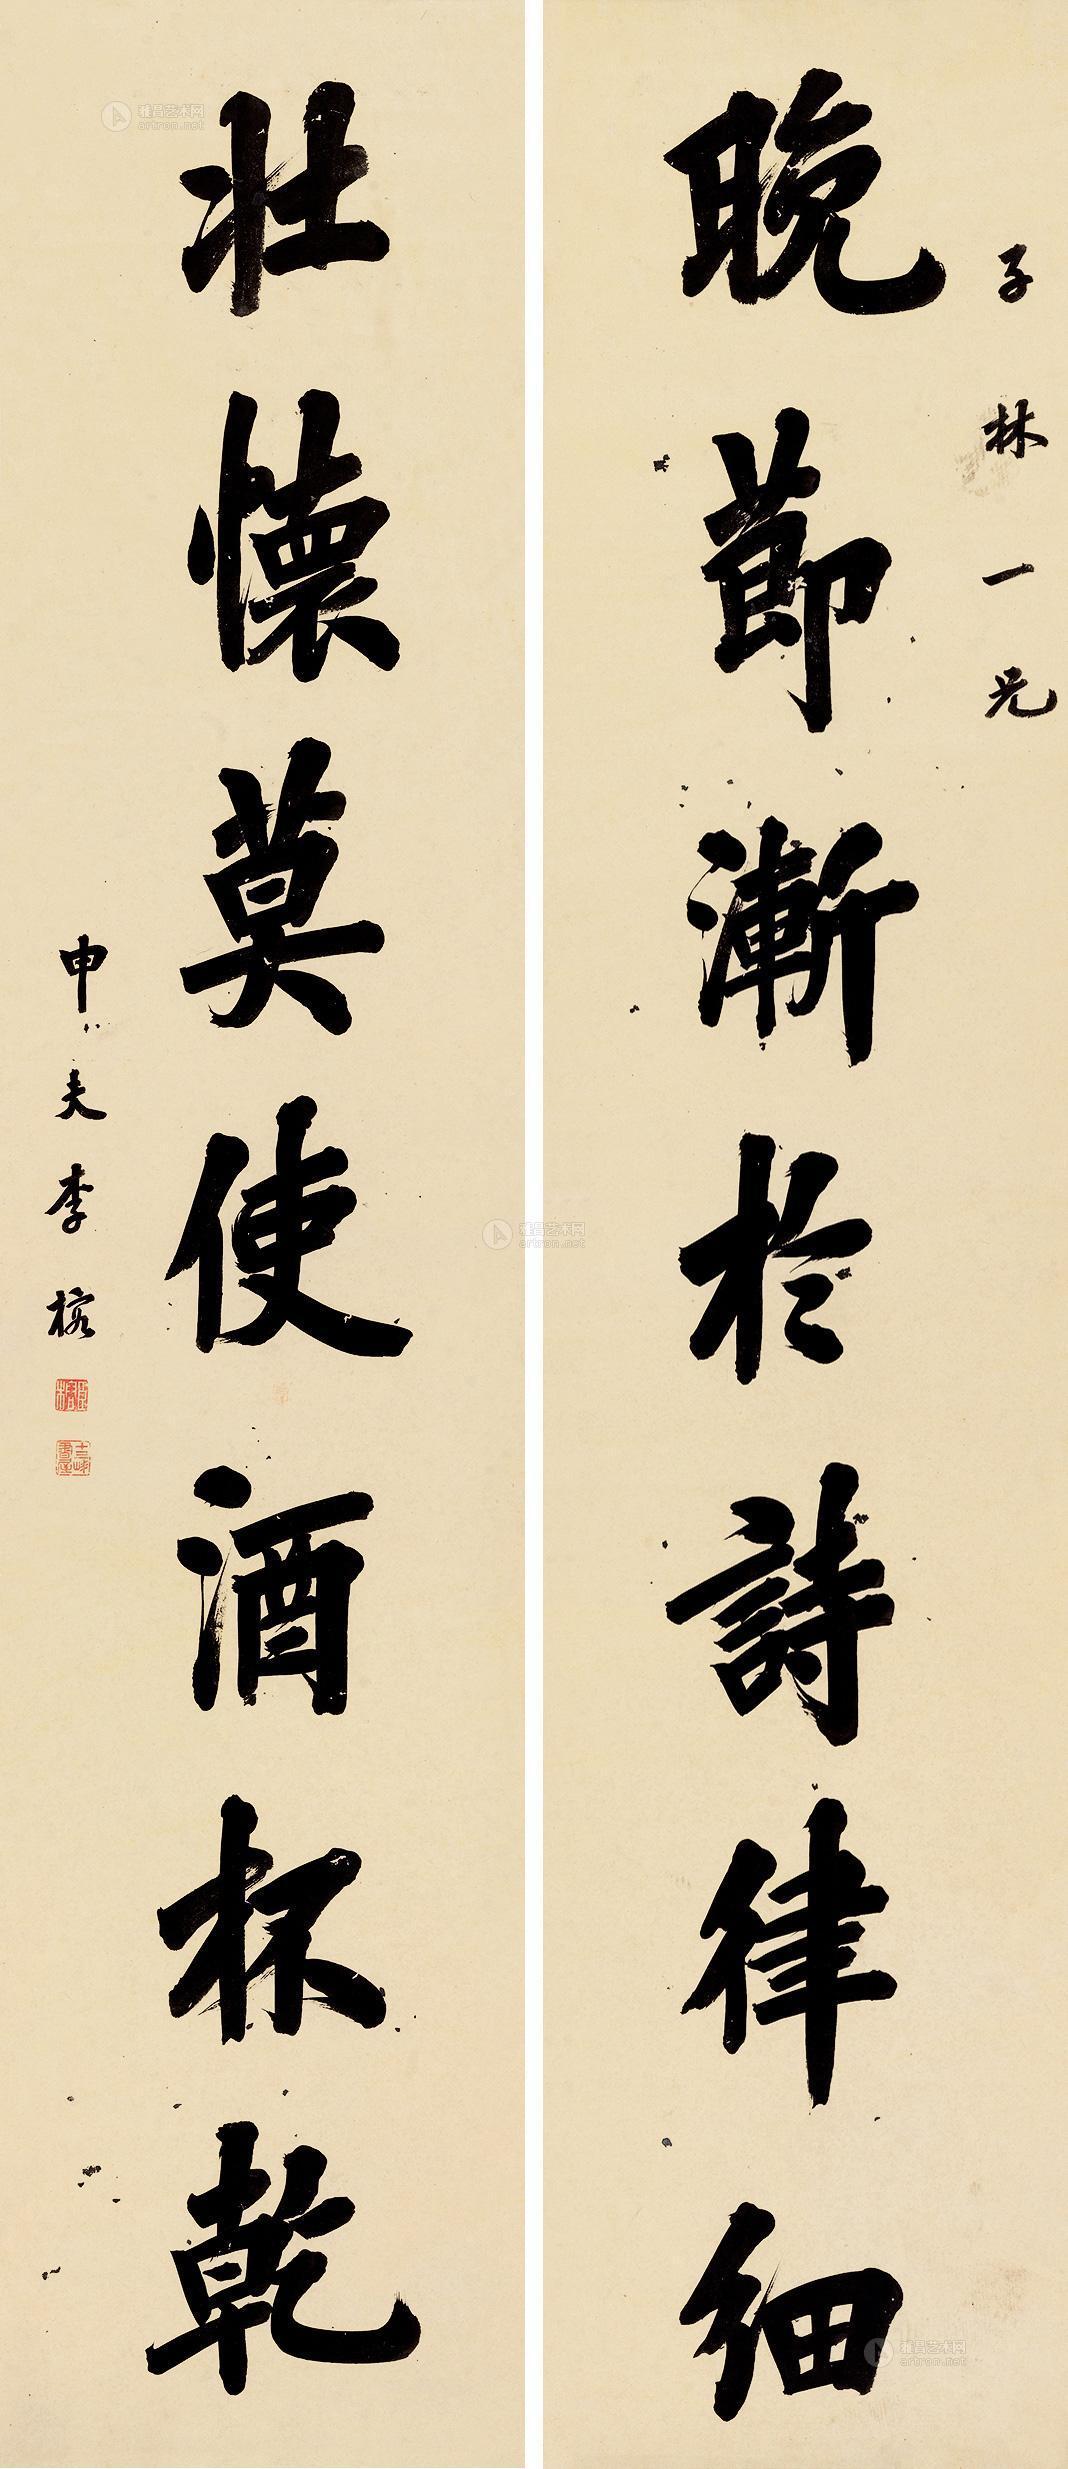 子林一兄
晚節漸於詩律細
壯懷莫使酒杯乾
申夫李榕
十三峰書屋
雅昌艺术网
artron.net
雅昌艺术网
artron.net
雅昌艺术网
artron.net